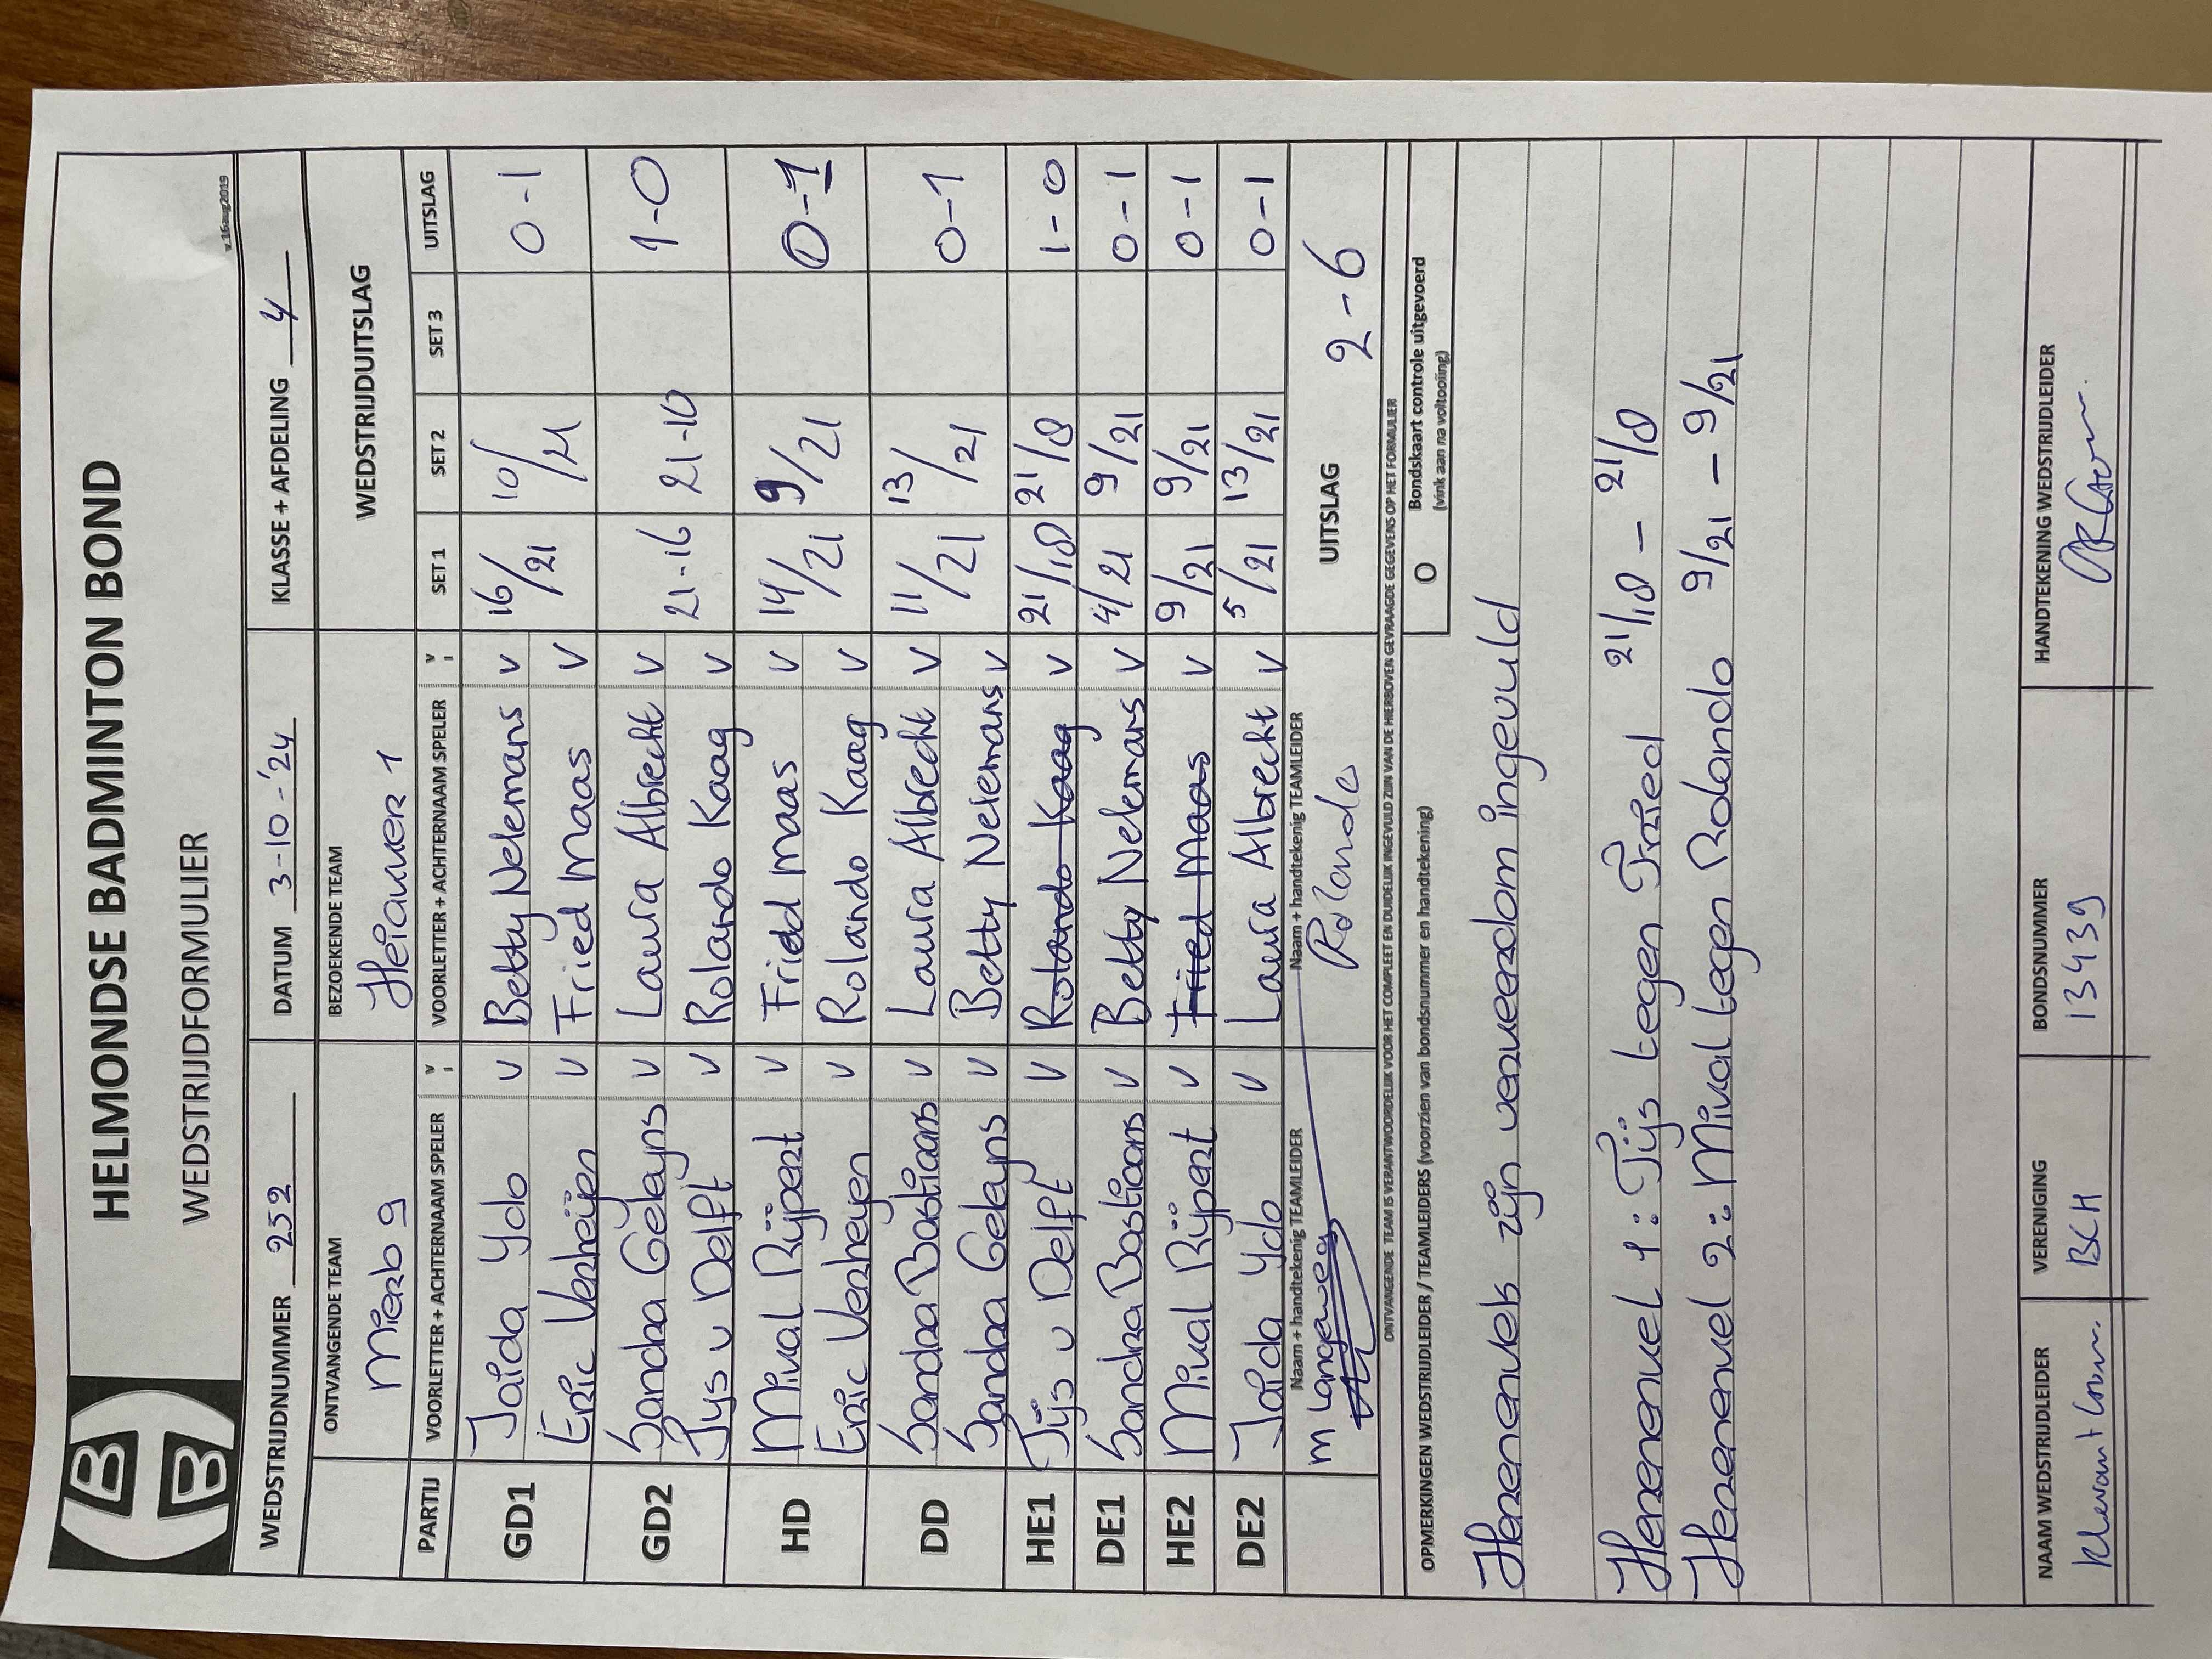 HELMONDSE BADMINTON BOND
WEDSTRIJDFORMULIER
v.16aug2019
WEDSTRIJDNUMMER 252 DATUM 3-10-'24 KLASSE + AFDELING 4
ONTVANGENDE TEAM BEZOEKENDE TEAM WEDSTRIJDUITSLAG
Mierlo 9
PARTIJ VOORLETTER + ACHTERNAAM SPELER V ; VOORLETTER + ACHTERNAAM SPELER V ; SET 1 SET 2 SET 3 UITSLAG
GD1 Jaida Ydo V Betty Nelemans V 16/21 10/21 0-1
Eric Verheijen V Fried Maas V
GD2 Sandra Geleyns V Laura Albrecht V 21-16 21-10 1-0
Tys v Delft V Rolando Kaag V
HD Mival Rijpert V Fried Maas V 14/21 9/21 0-1
Eric Verheyen V Rolando Kaag V
DD Sandra Bastiaans V Laura Albrecht V 11/21 13/21 0-1
Sandra Geleyns V Betty Nelemans V
HE1 Tijs v Delft V Rolando Kaag V 21/18 21/8 1-0
DE1 Sandra Bastiaans V Betty Nelemans V 4/21 9/21 0-1
HE2 Mival Rijpert V Fried Maas V 9/21 9/21 0-1
DE2 Jaida Ydo V Laura Albrecht V 5/21 13/21 0-1
Naam + handtekenig TEAMLEIDER Naam + handtekenig TEAMLEIDER UITSLAG 2-6
M Langeweg Rolando
ONTVANGENDE TEAM IS VERANTWOORDELIJK VOOR HET COMPLEET EN DUIDELIJK INGEVULD ZIJN VAN DE HIERBOVEN GEVRAAGDE GEGEVENS OP HET FORMULIER
OPMERKINGEN WEDSTRIJDLEIDER / TEAMLEIDERS (voorzien van bondsnummer en handtekening) O Bondskaart controle uitgevoerd
(vink aan na voltooiing)
Herenenkels zijn verkeerdom ingevuld
Herenenkel 1: Tijs tegen Fried 21/18 - 21/8
Herenenkel 2: Mival tegen Rolando 9/21 - 9/21
NAAM WEDSTRIJDLEIDER VERENIGING BONDSNUMMER HANDTEKENING WEDSTRIJDLEIDER
BCH 13439